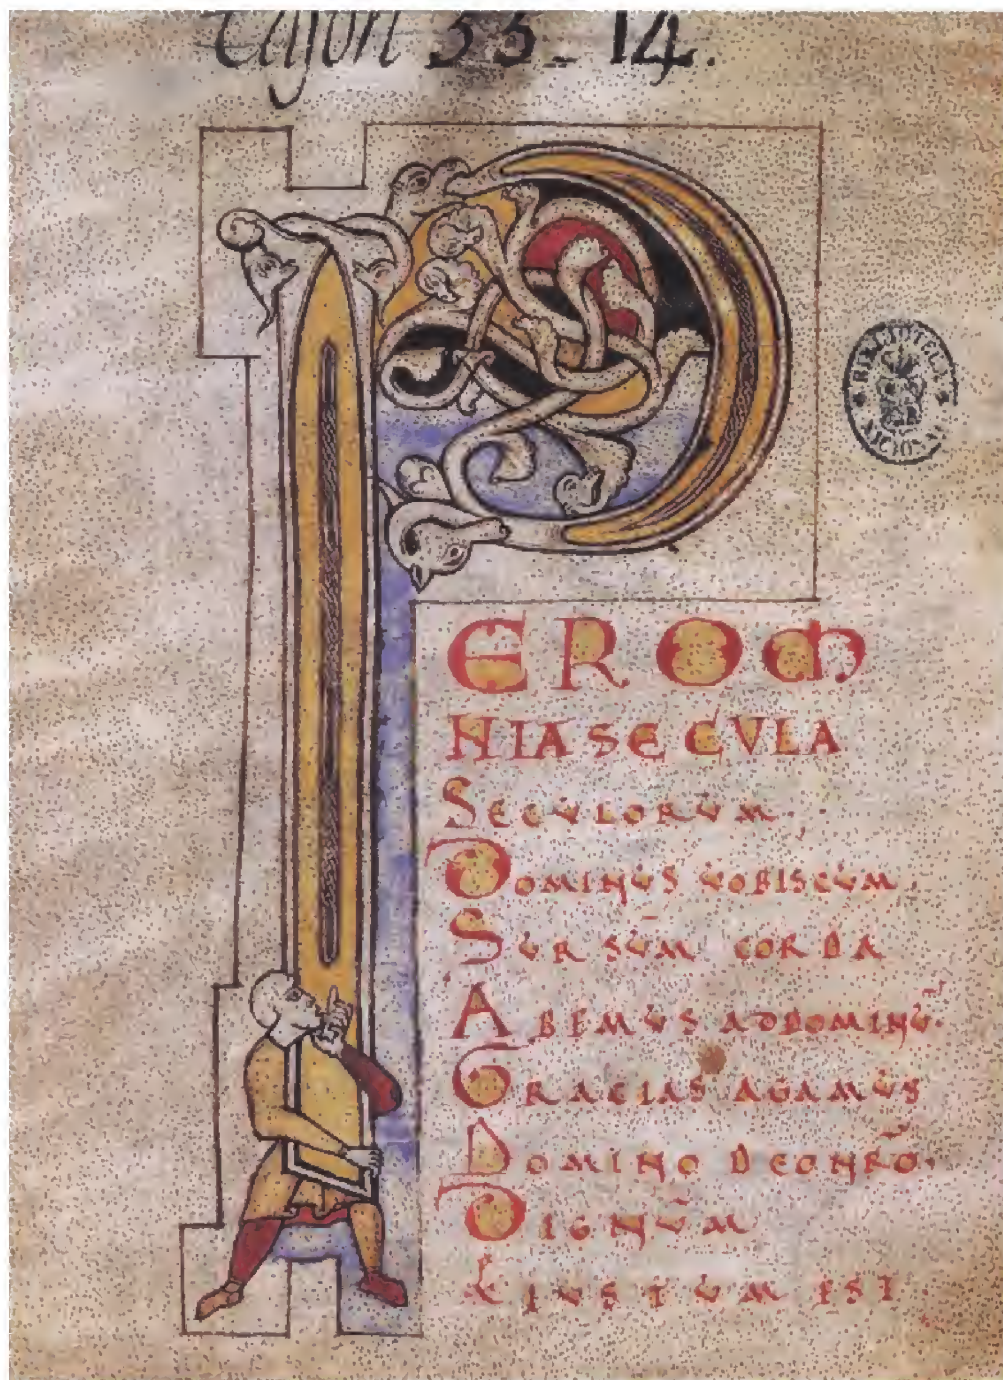 Cajon 35-14.
BIBLIOTECA NACIONAL
P
EROM
NIA SECULA
SECULORUM.
DOMINUS UOBISCUM.
SURSUM CORDA
ABEMUS AD DOMINU.
GRACIAS AGAMUS
DOMINO DEO NRO.
DIGNUM
& IUSTUM EST